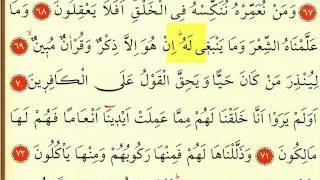 ﴿٦٧﴾ وَمَنْ نُعَمِّرْهُ نُنَكِّسْهُ فِى الْخَلْقِ اَفَلَا يَعْقِلُونَ ﴿٦٨﴾ وَمَا
عَلَّمْنَاهُ الشِّعْرَ وَمَا يَنْبَغِى لَهُ اِنْ هُوَ اِلَّا ذِكْرٌ وَقُرْاٰنٌ مُبِينٌ ﴿٦٩﴾
لِيُنْذِرَ مَنْ كَانَ حَيًّا وَيَحِقَّ الْقَوْلُ عَلَى الْكَافِرِينَ ﴿٧٠﴾
اَوَلَمْ يَرَوْا اَنَّا خَلَقْنَا لَهُمْ مِمَّا عَمِلَتْ اَيْدِينَا اَنْعَامًا فَهُمْ لَهَا
مَالِكُونَ ﴿٧١﴾ وَذَلَّلْنَاهَا لَهُمْ فَمِنْهَا رَكُوبُهُمْ وَمِنْهَا يَأْكُلُونَ ﴿٧٢﴾